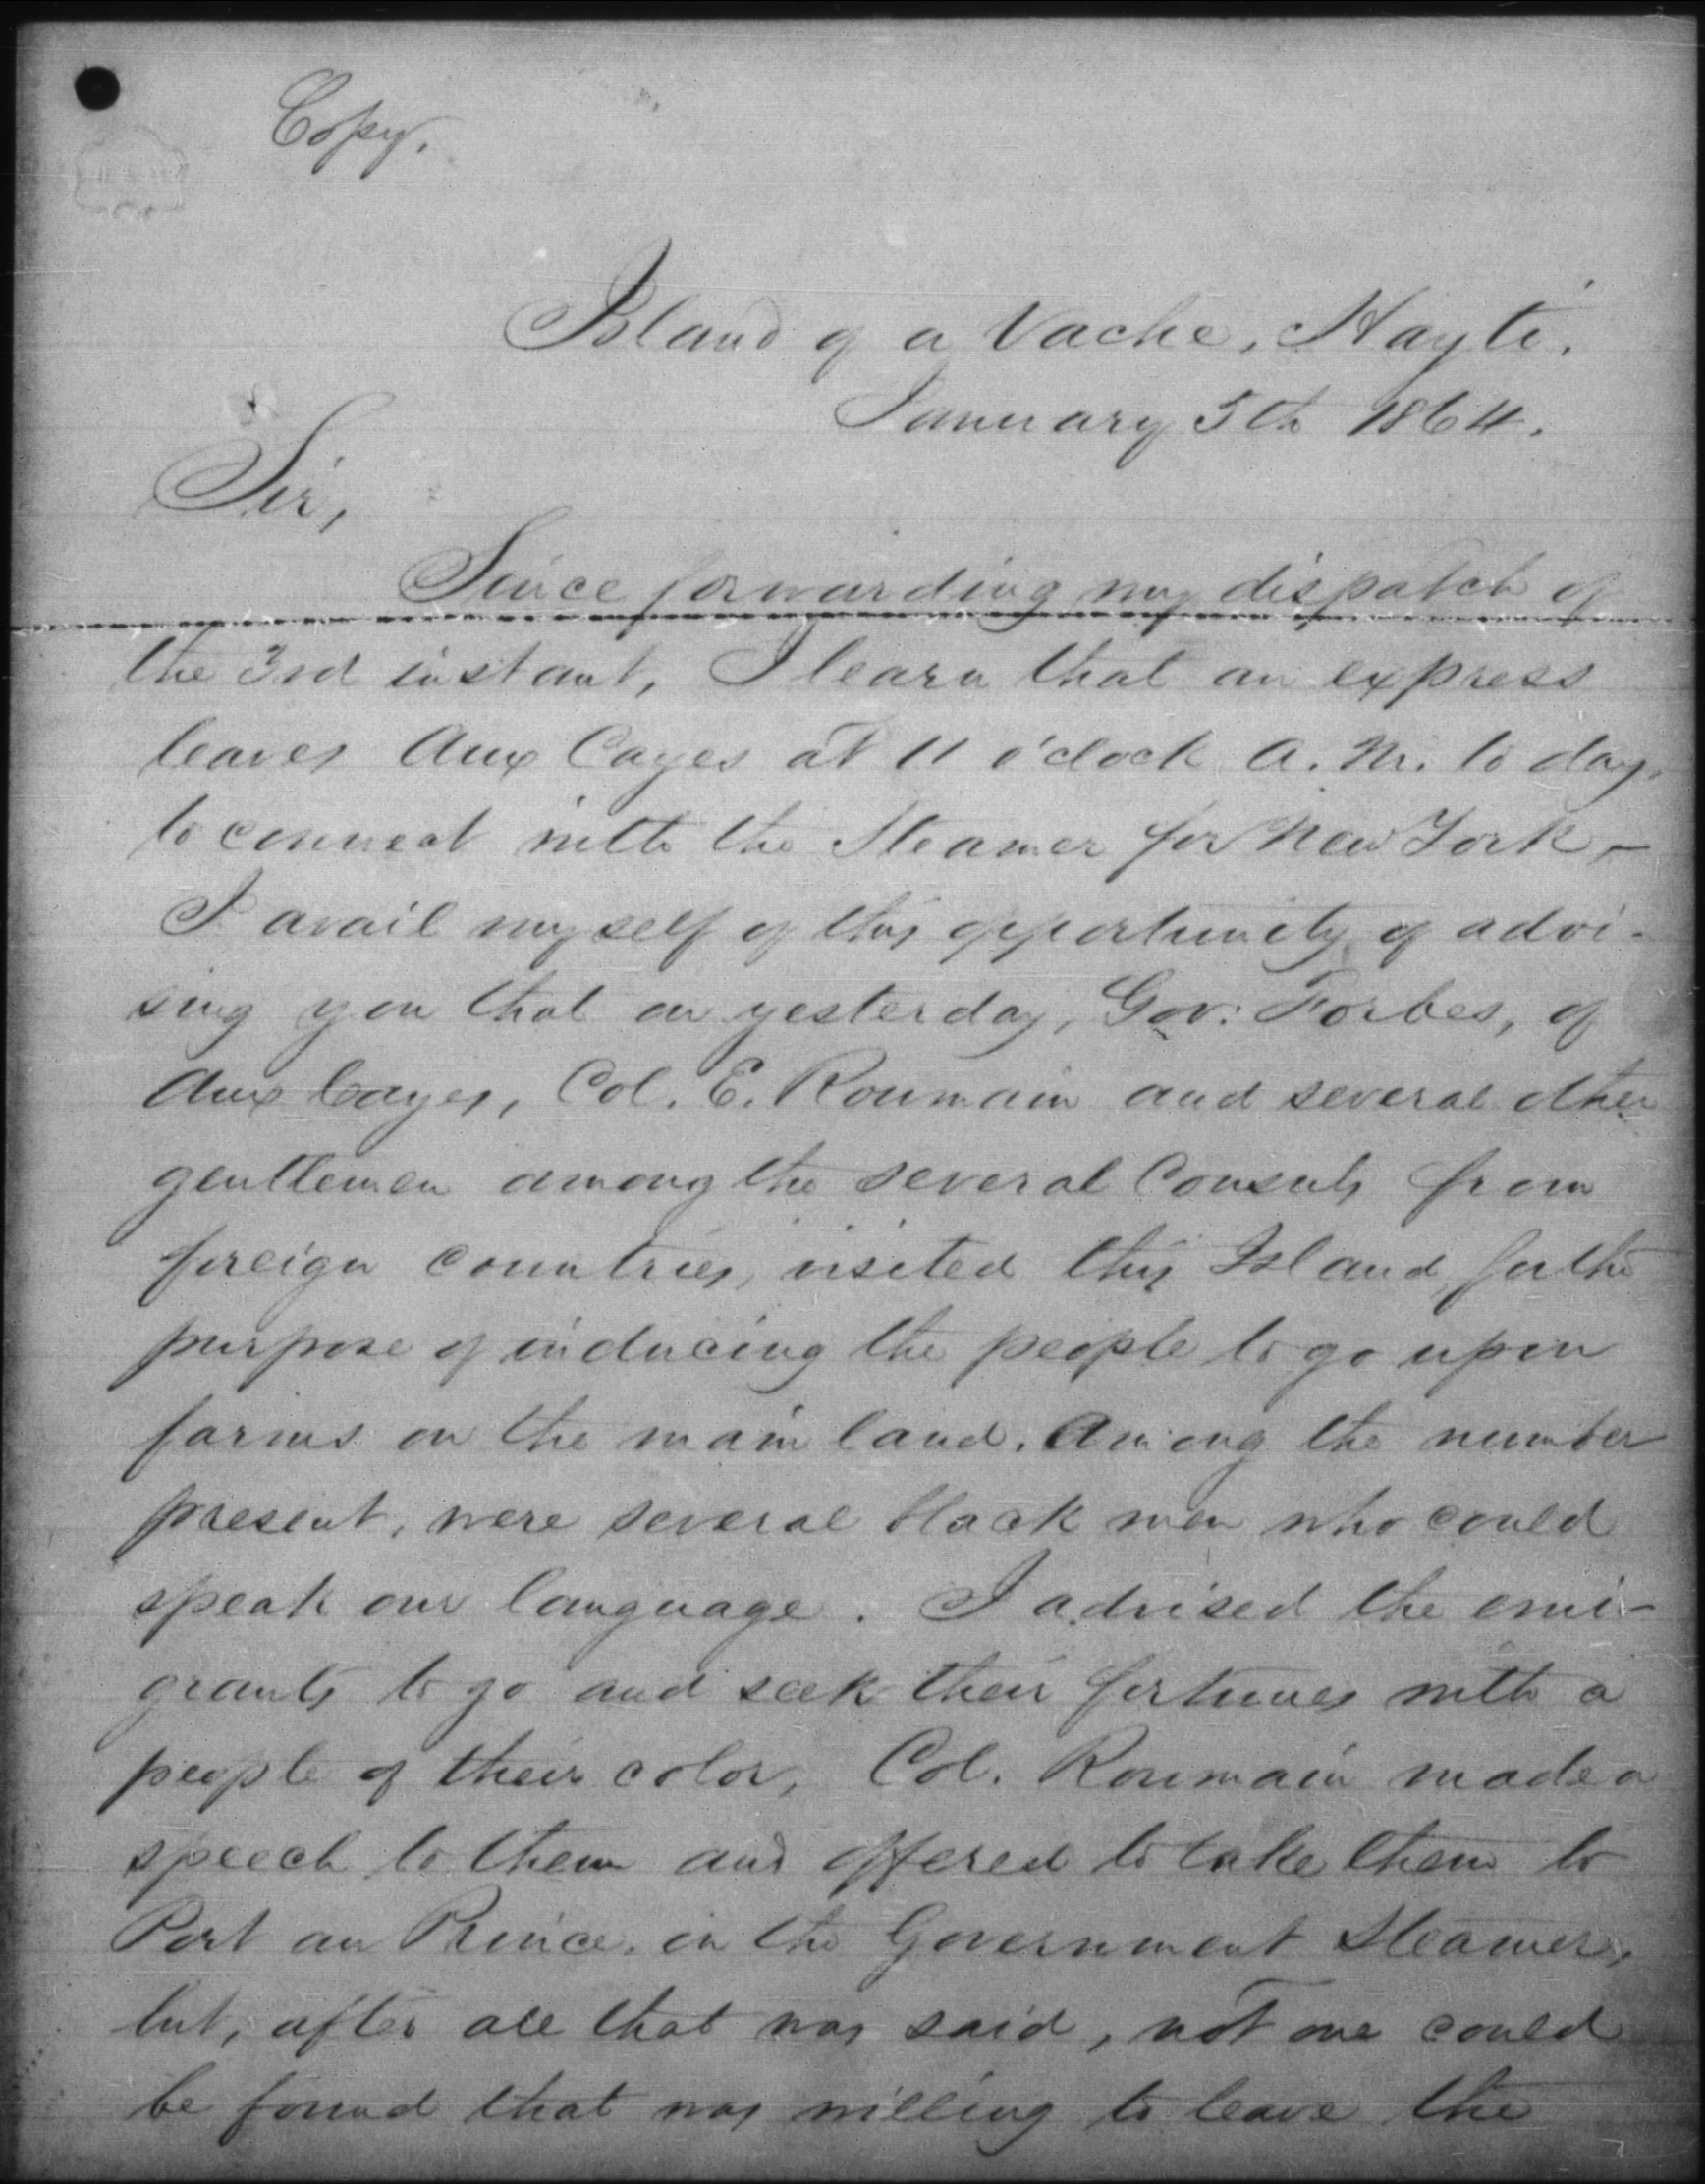 Copy.
Island of a Vache, Hayti.
January 5th 1864.
Sir,
Since forwarding my dispatch of
the 3rd instant, I learn that an express
leaves Aux Cayes at 11 o'clock A.M. to day,
to connect with the Steamer for New York, –
I avail myself of this opportunity of advi-
sing you that on yesterday, Gov: Forbes, of
Aux Cayes, Col. E. Roumain and several other
gentlemen among the several Consuls from
foreign countries, visited this Island, for the
purpose of inducing the people to go upon
farms on the main land. Among the number
present, were several black men who could
speak our language. I advised the emi-
grants to go and seek their fortunes with a
people of their color, Col. Roumain made a
speech to them and offered to take them to
Port au Prince, in the Government Steamer,
but, after all that was said, not one could
be found that was willing to leave the